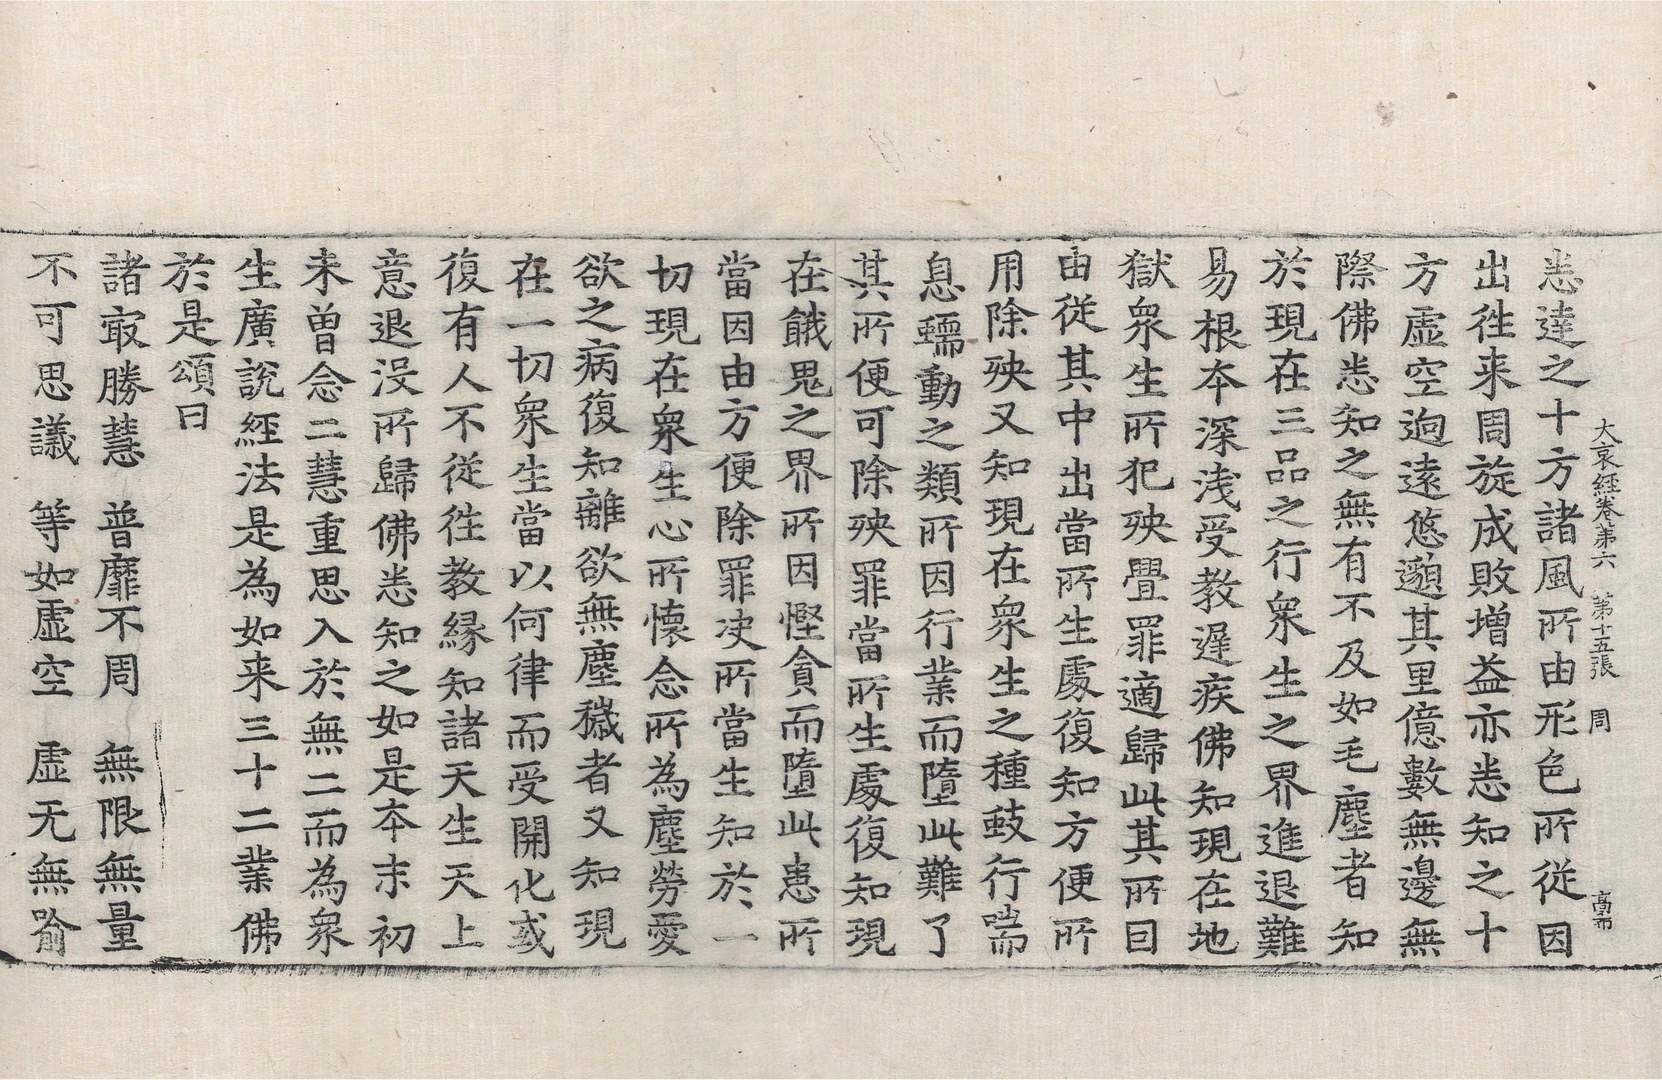 大哀經卷第六 第十五張 周 高甫
悉達之十方諸風所由形色所從因
出往来周旋成敗增益亦悉知之十
方虛空逈遠悠邈其里億數無邊無
際佛悉知之無有不及如毛塵者知
於現在三品之行衆生之界進退難
易根本深淺受教遲疾佛知現在地
獄衆生所犯殃舋罪適歸此其所因
由從其中出當所生處復知方便所
用除殃又知現在衆生之種蚑行喘
息蠕動之類所因行業而墮此難了
其所便可除殃罪當所生處復知現
在餓鬼之界所因慳貪而墮此患所
當因由方便除罪决所當生知於一
切現在衆生心所懷念所為塵勞愛
欲之病復知離欲無塵穢者又知現
在一切衆生當以何律而受開化或
復有人不從往教緣知諸天生天上
意退沒所歸佛悉知之如是本末初
未曾念二慧重思入於無二而為衆
生廣說經法是為如来三十二業佛
於是頌曰
諸㝡勝慧 普靡不周 無限無量
不可思議 等如虛空 虛无無喻